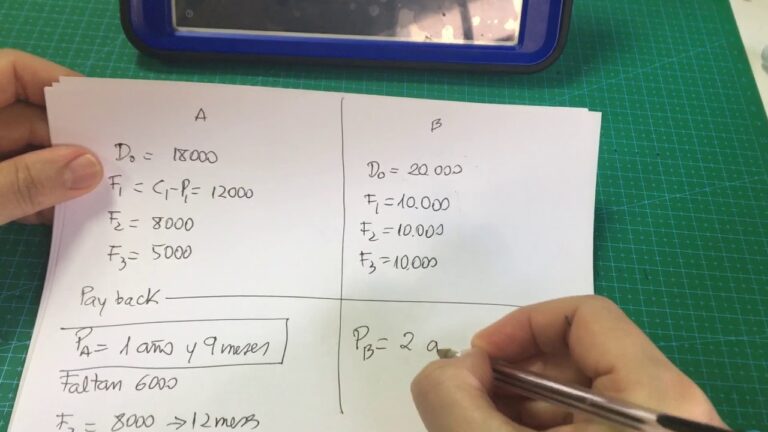 A
D₀ = 18000
F₁ = C₁-P₁= 12000
F₂ = 8000
F₃ = 5000
B
D₀ = 20.000
F₁ =10.000
F₂ =10.000
F₃ =10.000
Pay back
P_A = 1 año y 9 meses
Faltan 6000
F₂ = 8000 → 12 meses
P_B = 2 a